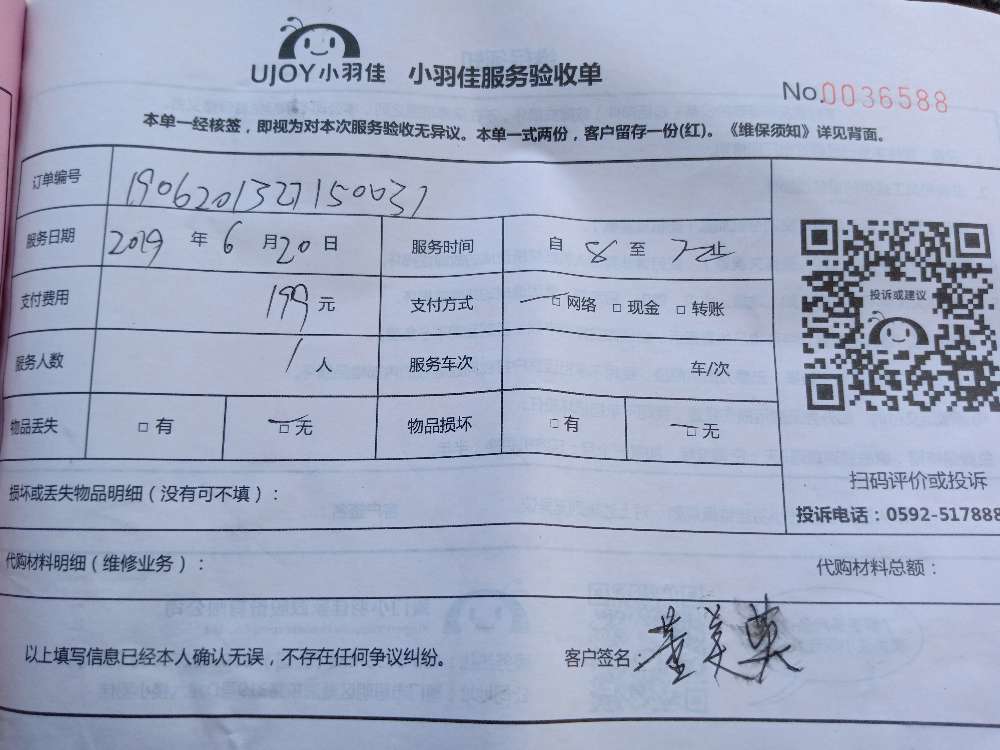 UJOY小羽佳 小羽佳服务验收单
No.0036588
本单一经核签，即视为对本次服务验收无异议。本单一式两份，客户留存一份(红)。《维保须知》详见背面。
订单编号 1906201327150031
服务日期 2019 年 6 月 20 日 服务时间 自 8 至 止
支付费用 199 元 支付方式 □网络 □现金 □转账
服务人数 1 人 服务车次 车/次
物品丢失 □有 □无 物品损坏 □有 □无
投诉或建议
扫码评价或投诉
投诉电话：0592-517888
损坏或丢失物品明细（没有可不填）：
代购材料明细（维修业务）： 代购材料总额：
以上填写信息已经本人确认无误，不存在任何争议纠纷。 客户签名：